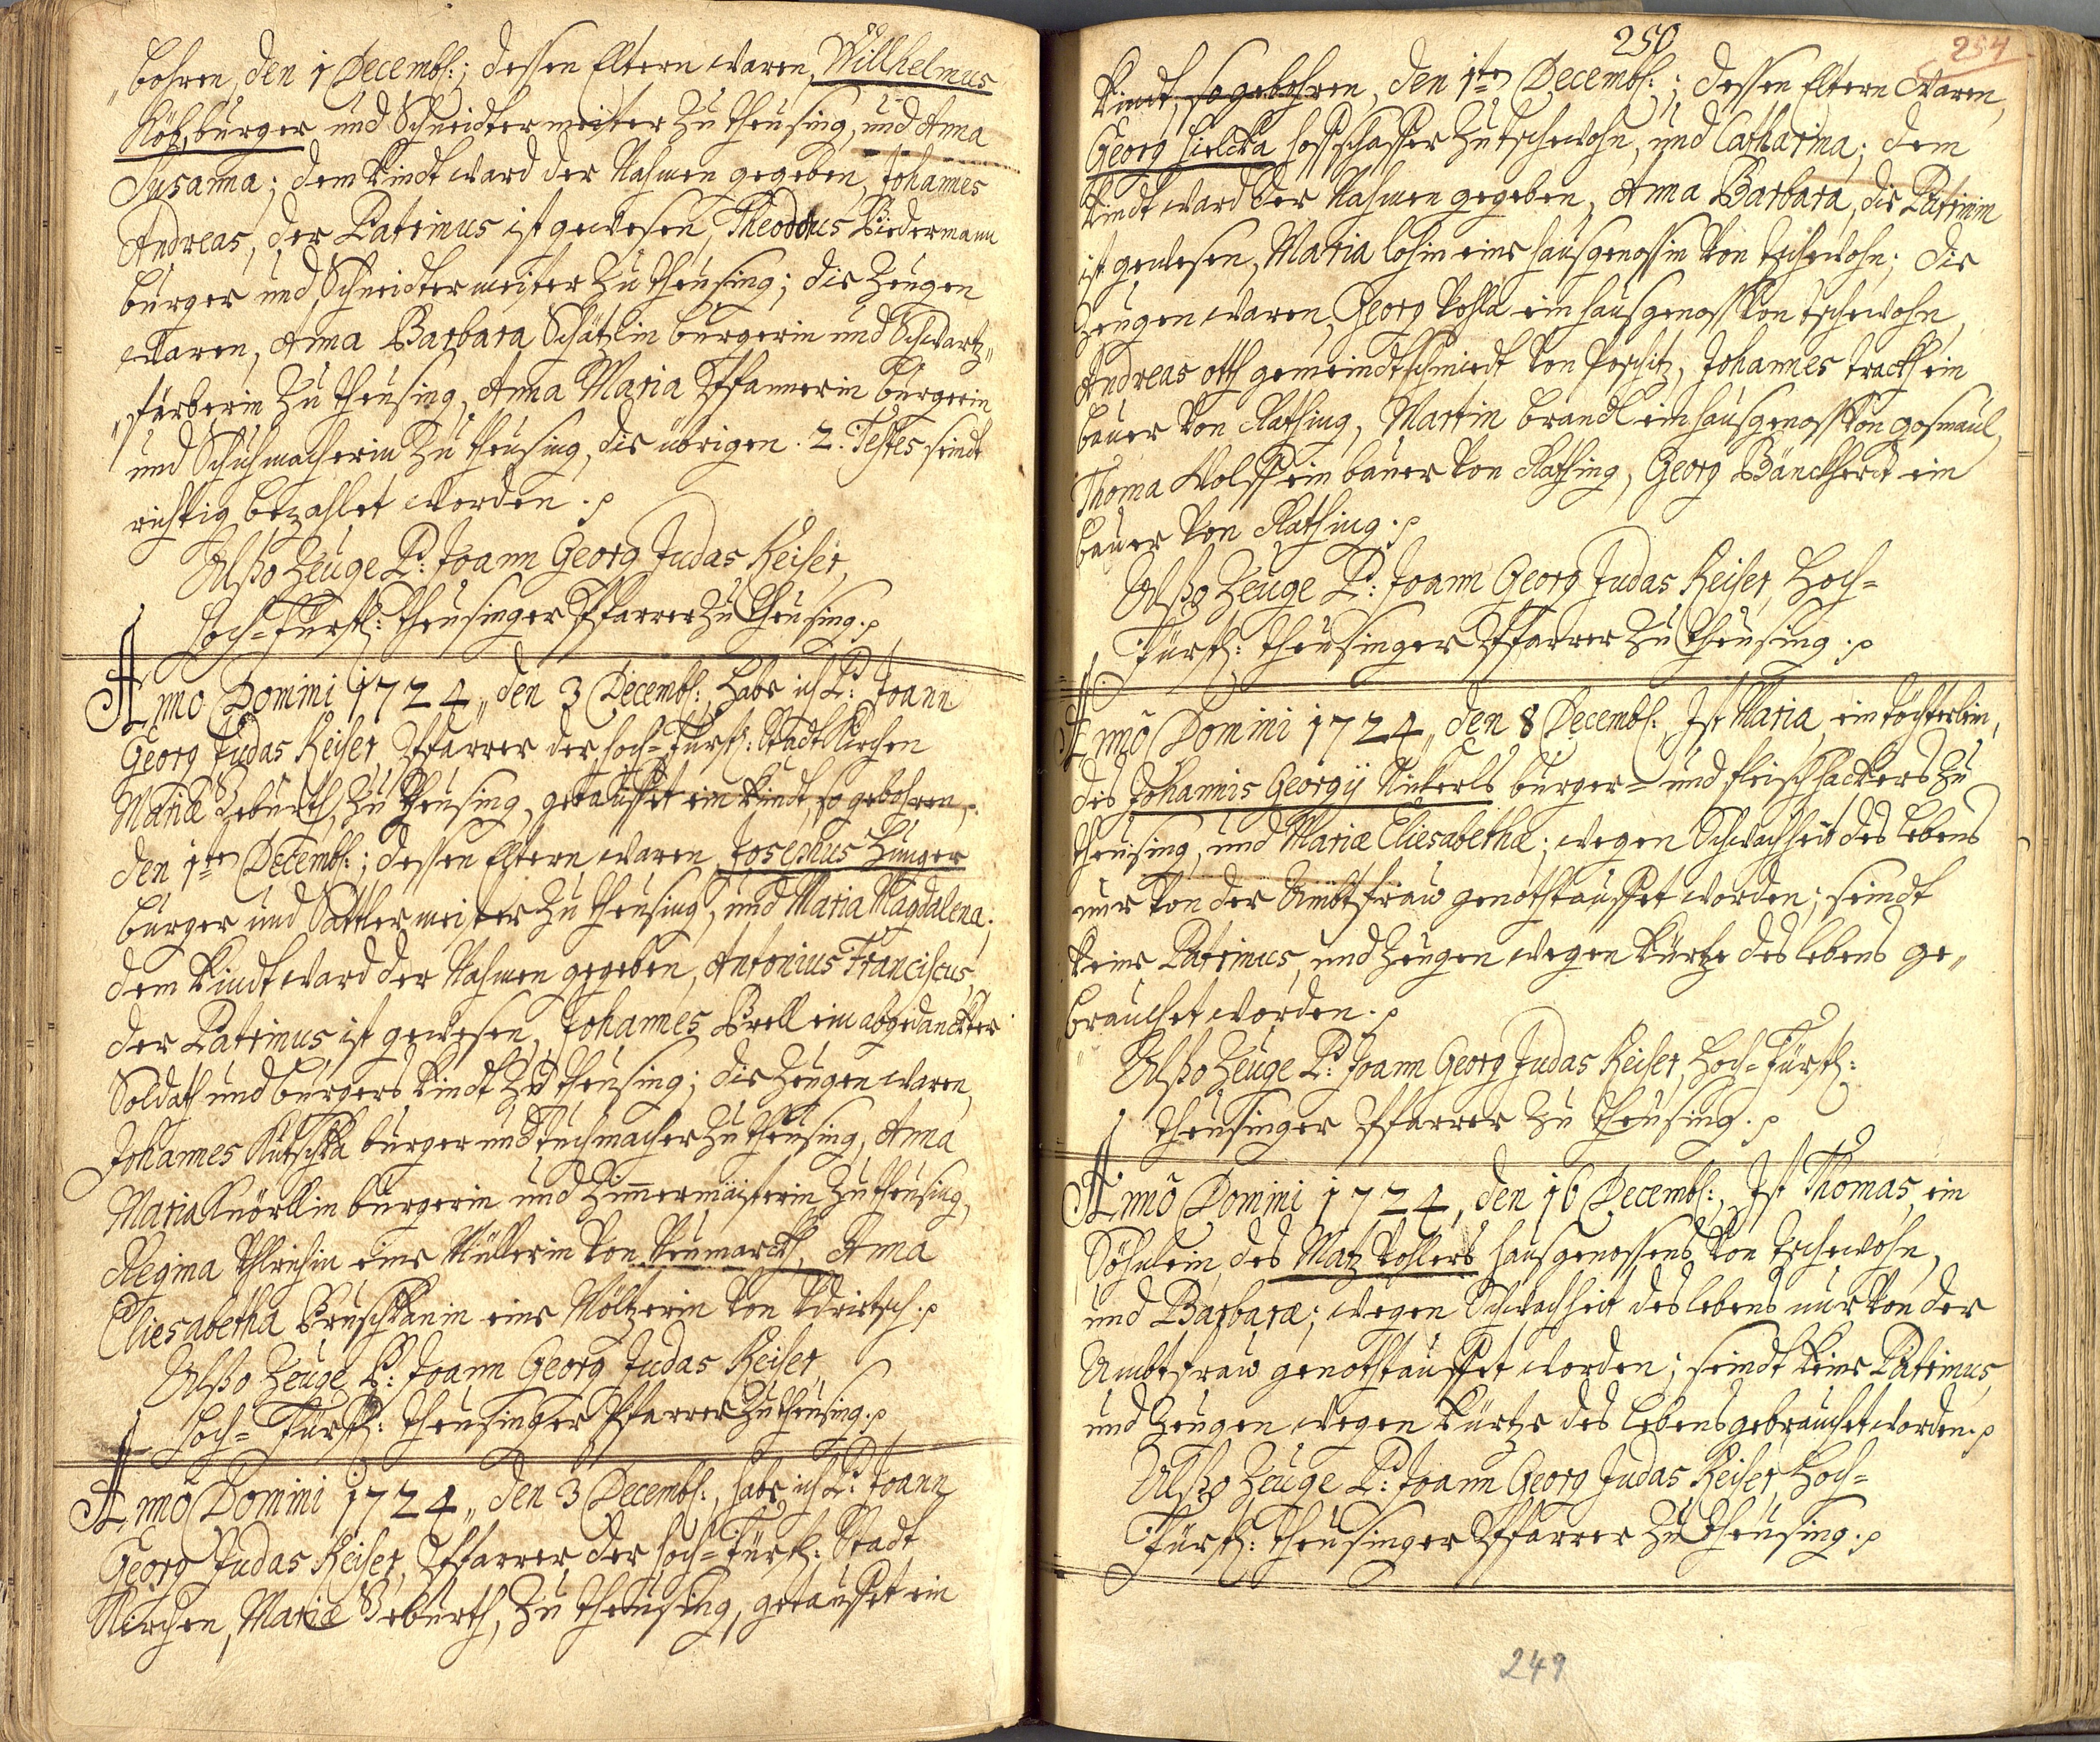 bohren, den 1 Decembl:; dessen Eltern waren, Willhelmus
Köhl, burger und Schneidtermeister zu theusing, und Anna
Susanna; dem kindt ward der Nahmen gegeben, Johannes
Andreas, der Patrinus ist gewesen, Theodorus Biedermann
burger und Schneidtermeister zu theusing; die Zeugen
waren, Anna Barbara Schätzlin burgerin und Schwartz„
„färberin zu theusing, Anna Maria Pfannerin burgerin
und Schuhmacherin zu theusing, die übrigen . 2 . Testes seindt
richtig bezahlet worden .
Alßo Zeuge P: Joann Georg Judas Keiser,
Hoch=Fürstl: theusinger Pfarrer zu theusing.
Anno Domini 1724„ den 3 Decembl: habe ich P: Joann
Georg Judas Keiser, Pfarrer der hoch=Fürstl: Stadt Kirchen
Mariæ Geburth, zu theusing, getauffet ein kindt, so gebohren,
den 1ten Decembl:; dessen Eltern waren, Josephus Zinger
burger und Sattlermeister zu theusing, und Maria Magdalena;
dem kindt ward der Nahmen gegeben, Antonius Franciscus,
der Patrinus ist gewesen, Johannes Brell ein abgedanckter
Soldath und burgers kindt zu theusing; die Zeugen waren,
Johannes Kutschka burger und tuchmacher zu theusing, Anna
Maria Knörllin burgerin und Zimmermeisterin zu theusing,
Regina eine Müllerin von Neumarckh, Anna
Eliesabetha eine Möltzerin von
Alßo Zeuge P: Joann Georg Judas Keiser,
Hoch=Fürstl: theusinger Pfarrer zu theusing.
Anno Domini 1724„ den 3 Decembl:, habe ich P: Joann
Georg Judas Keiser, Pfarrer der hoch=Fürstl: Stadt
Kirchen, Mariæ Geburth, zu theusing, getauffet ein
250
254
kindt, so gebohren, den 1ten Decembl:; dessen Eltern waren,
Georg Hielcka hoffschaffer zu tschewohn, und Catharina; dem
kindt ward der Nahmen gegeben, Anna Barbara, die Patrinin
ist gewesen, Maria lohin eine hausgenossin von tschewohn; die
Zeugen waren, Georg Pohla ein hausgenoss von tschewohn,
Andreas ott gemeindtschmiedt von Poschitz, Johannes trach ein
bauer von Rathsing, Martin Brandl ein hausgenoss von gosmaul,
Thoma Wolff ein bauer von Rathsing, Georg Bänckherdt ein
bauer von Rathsing.
Alßo Zeuge P: Joann Georg Judas Keiser, Hoch=
Fürstl: theusinger Pfarrer zu theusing .
Anno Domini 1724„ den 8 Decembl: Ist Maria, ein töchterlein,
des Johannis Georgij Nickerls burger= und fleischhackers zu
theusing, und Mariæ Eliesabethæ; wegen Schwachheit des lebens
nur von der Ambtfraw genothtauffet worden; seindt
keine Patrinus, und Zeugen wegen kürtze des lebens ge„
brauchet worden.
Alßo Zeuge P: Joann Georg Judas Keiser, Hoch=Fürstl:
theusinger Pfarrer zu theusing.
Anno Domini 1724, den 16 Decembl:, Ist Thomas, ein
Söhnlein des Matz Kohlers hausgenossens von tschewohn,
und Barbaræ; wegen Schwachheit des lebens nur von der
Ambtfraw genothtauffet worden; seindt keine Patrinus,
und Zeugen wegen kürtze des lebens gebrauchet worden.
Alßo Zeuge P: Joann Georg Judas Keiser, Hoch=
Fürstl: theusinger Pfarrer zu theusing.
249